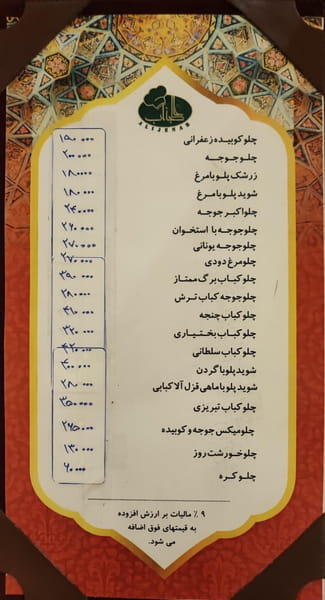 عالیجناب
ALIJENAB
چلو کوبیده زعفرانی ۱۵۰۰۰۰
چلو جوجه ۲۰۰۰۰۰
زرشک پلو با مرغ ۱۸۰۰۰۰
شوید پلو با مرغ ۱۸۰۰۰۰
چلو اکبر جوجه ۲۴۰۰۰۰
چلو جوجه با استخوان ۲۶۰۰۰۰
چلو جوجه یونانی ۲۷۰۰۰۰
چلو مرغ دودی ۲۷۰۰۰۰
چلو کباب برگ ممتاز ۳۵۰۰۰۰
چلو جوجه کباب ترش ۲۸۰۰۰۰
چلو کباب چنجه ۴۱۰۰۰۰
چلو کباب بختیاری ۳۲۰۰۰۰
چلو کباب سلطانی ۴۲۰۰۰۰
شوید پلو با گردن
شوید پلو با ماهی قزل آلا کبابی ۲۸۰۰۰۰
چلو کباب تبریزی ۳۵۰۰۰۰
چلو میکس جوجه و کوبیده ۲۷۵۰۰۰
چلو خورشت روز ۱۳۰۰۰۰
چلو کره ۶۰۰۰۰
۹ ٪ مالیات بر ارزش افزوده
به قیمتهای فوق اضافه
می شود.